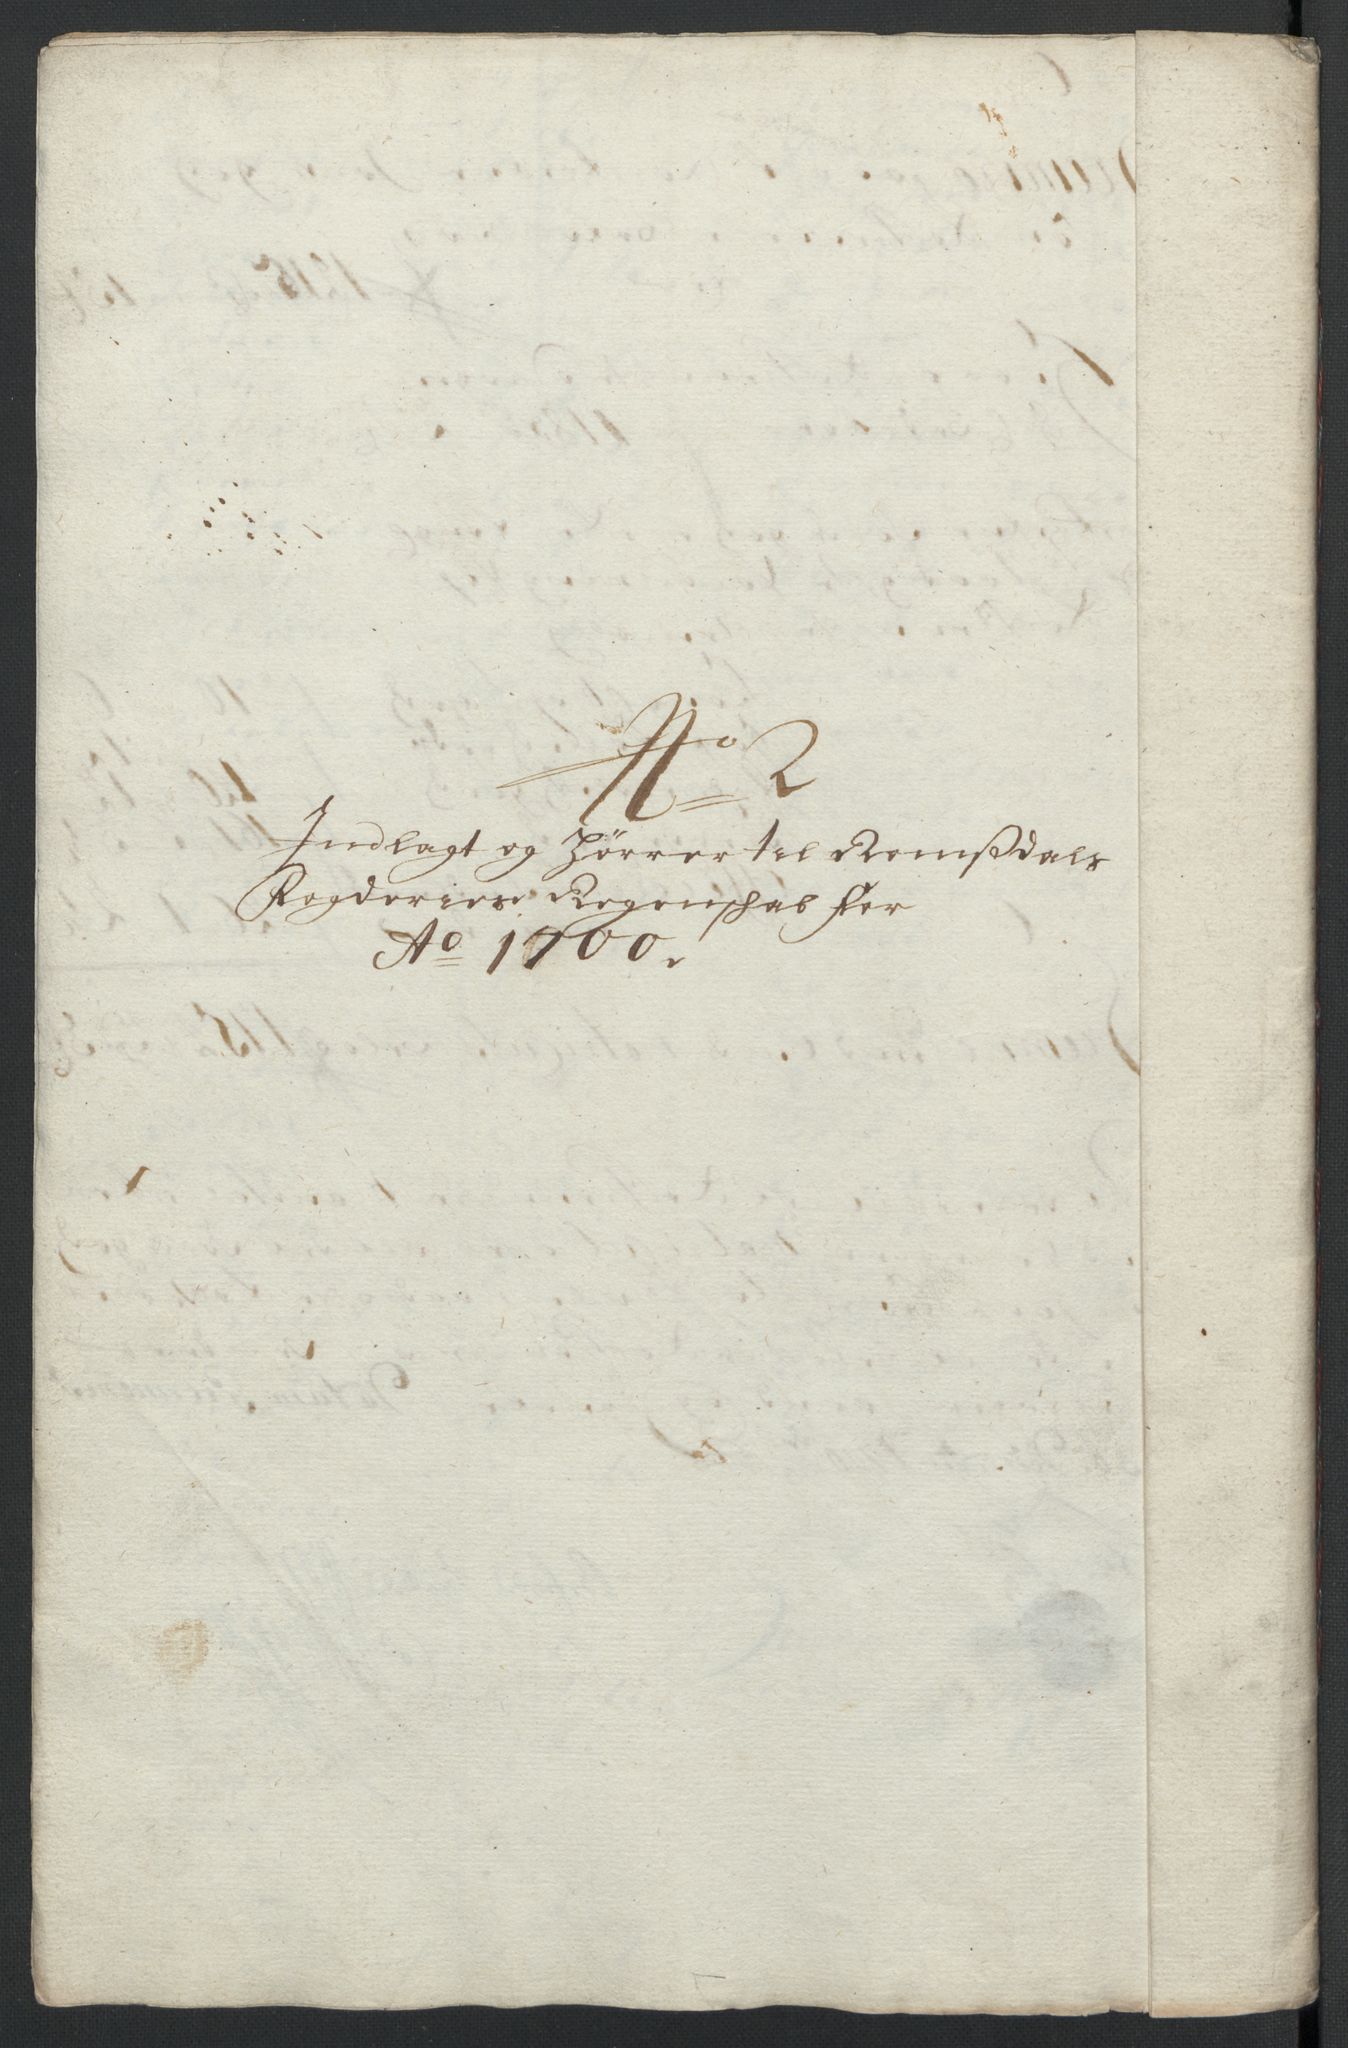 No 2
Indlagt og hörrer til Romßdals
Fogderies Regenschab for
Ao 1700.